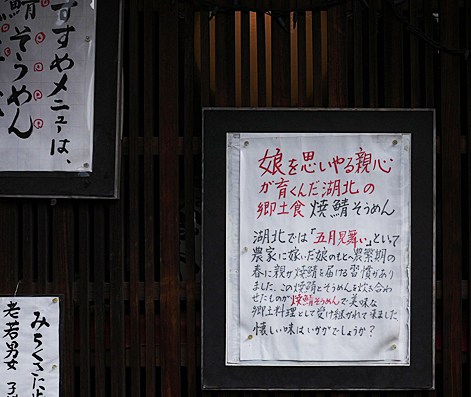 娘を思いやる親心
が育くんだ湖北の
郷土食 焼鯖そうめん
湖北では「五月見舞い」といって
農家に嫁いだ娘のもとへ農繁期の
春に親が焼鯖を届ける習慣があり
ました。この焼鯖とそうめんを炊き合わ
せたものが焼鯖そうめんで美味な
郷土料理として受け継がれて来ました
懐しい味はいかがでしょうか？
すすめメニューは、
鯖そうめん
みちくさに
老若男女